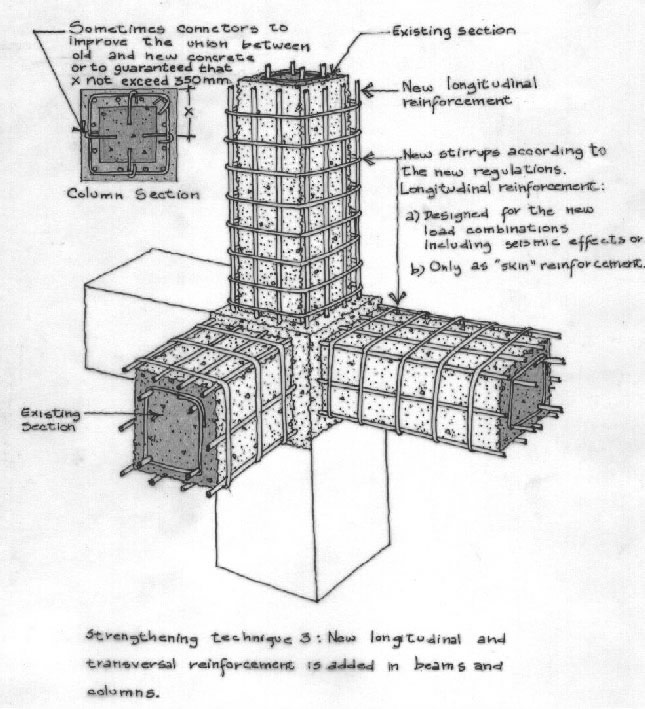 Sometimes connetors to
improve the union between
old and new concrete
or to guaranteed that
x not exceed 350mm.
x
Column Section
Existing section
New longitudinal
reinforcement
New stirrups according to
the new regulations.
Longitudinal reinforcement:
a) Designed for the new
load combinations
including seismic effects or
b) Only as "skin" reinforcement.
Existing
Section
Strengthening technique 3: New longitudinal and
transversal reinforcement is added in beams and
columns.